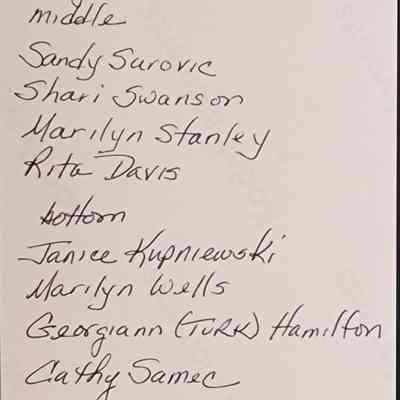 middle
Sandy Surovic
Shari Swanson
Marilyn Stanley
Rita Davis
bottom
Janice Kupniewski
Marilyn Wells
Georgiann (Turk) Hamilton
Cathy Samec